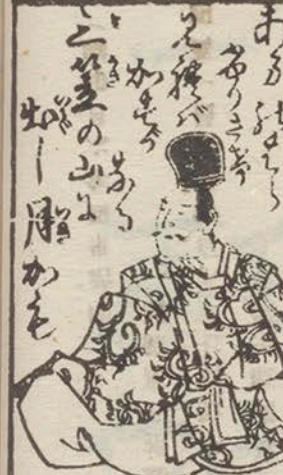 あまのはら
ふりさけ
見れば
かすが
なる
三笠の山に
出し月かも